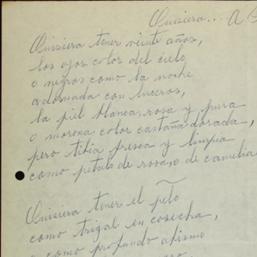 Quisiera... A
Quisiera tener veinte años,
los ojos color del cielo
o negros como la noche
adornada con luceros,
la piel blanca, rosa y pura
o morena color castaña dorada,
pero tibia fresca y limpia
como petalo de rosa o de camelia
Quisiera tener el pelo
como trigal en cosecha,
o como profundo abismo